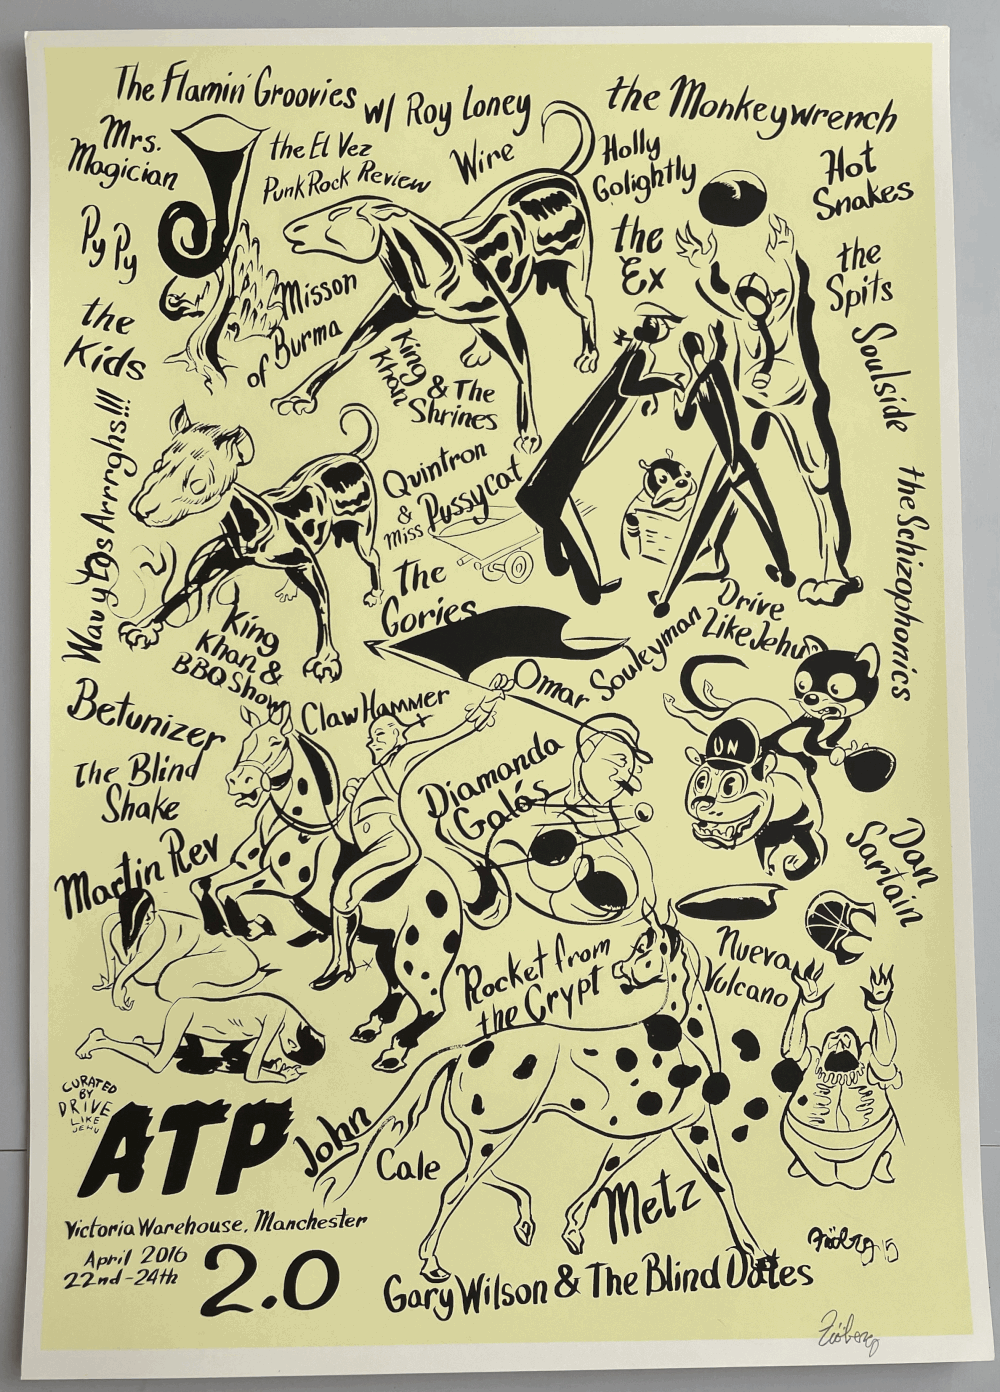 The Flamin' Groovies w/ Roy Loney
the Monkeywrench
Mrs.
Magician
the El Vez
Punk Rock Review
Wire
Holly
Golightly
Hot
Snakes
Py Py
the
Ex
the
Spits
Misson
of Burma
the
Kids
King
Khan & The
Shrines
Soulside
Wau y Los Arrrghs!!!
Quintron
&
Miss Pussycat
the Schizophonics
The
Gories
King
Khan &
BBQ Show
Drive
Like Jehu
Omar Souleyman
Betunizer
Claw Hammer
the Blind
Shake
UN
Diamanda
Galás
Martin Rev
Dan
Sartain
Nueva
Vulcano
Rocket from
the Crypt
CURATED
BY
DRIVE
LIKE
JEHU
ATP
John
Cale
Metz
Victoria Warehouse, Manchester
April 2016
22nd-24th
2.0
Gary Wilson & The Blind Dates